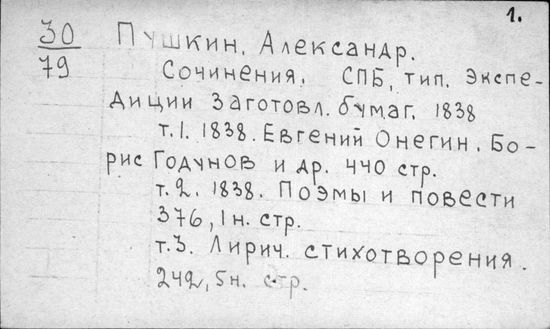 1.
30 Пушкин, Александр.
79 Сочинения. СПБ, тип. Экспе-
диции Заготовл. бумаг. 1838
т.1. 1838. Евгений Онегин. Бо-
рис Годунов и др. 440 стр.
т.2. 1838. Поэмы и повести
376, 1 н. стр.
т.3. Лирич. стихотворения.
242, 5 н. стр.